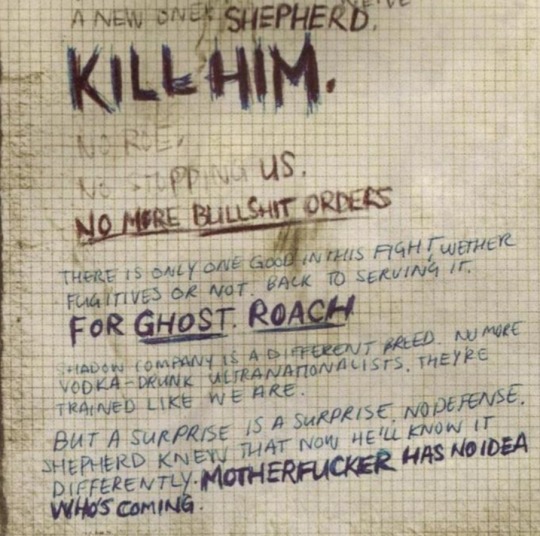 A NEW ONE. SHEPHERD.
KILL HIM.
NO ROE.
NO STOPPING US.
NO MORE BULLSHIT ORDERS
THERE IS ONLY ONE GOOD IN THIS FIGHT, WETHER
FUGITIVES OR NOT. BACK TO SERVING IT.
FOR GHOST. ROACH
SHADOW COMPANY IS A DIFFERENT BREED. NO MORE
VODKA-DRUNK ULTRANATIONALISTS. THEY'RE
TRAINED LIKE WE ARE.
BUT A SURPRISE IS A SURPRISE. NO DEFENSE.
SHEPHERD KNEW THAT NOW HE'LL KNOW IT
DIFFERENTLY. MOTHERFUCKER HAS NO IDEA
WHO'S COMING.